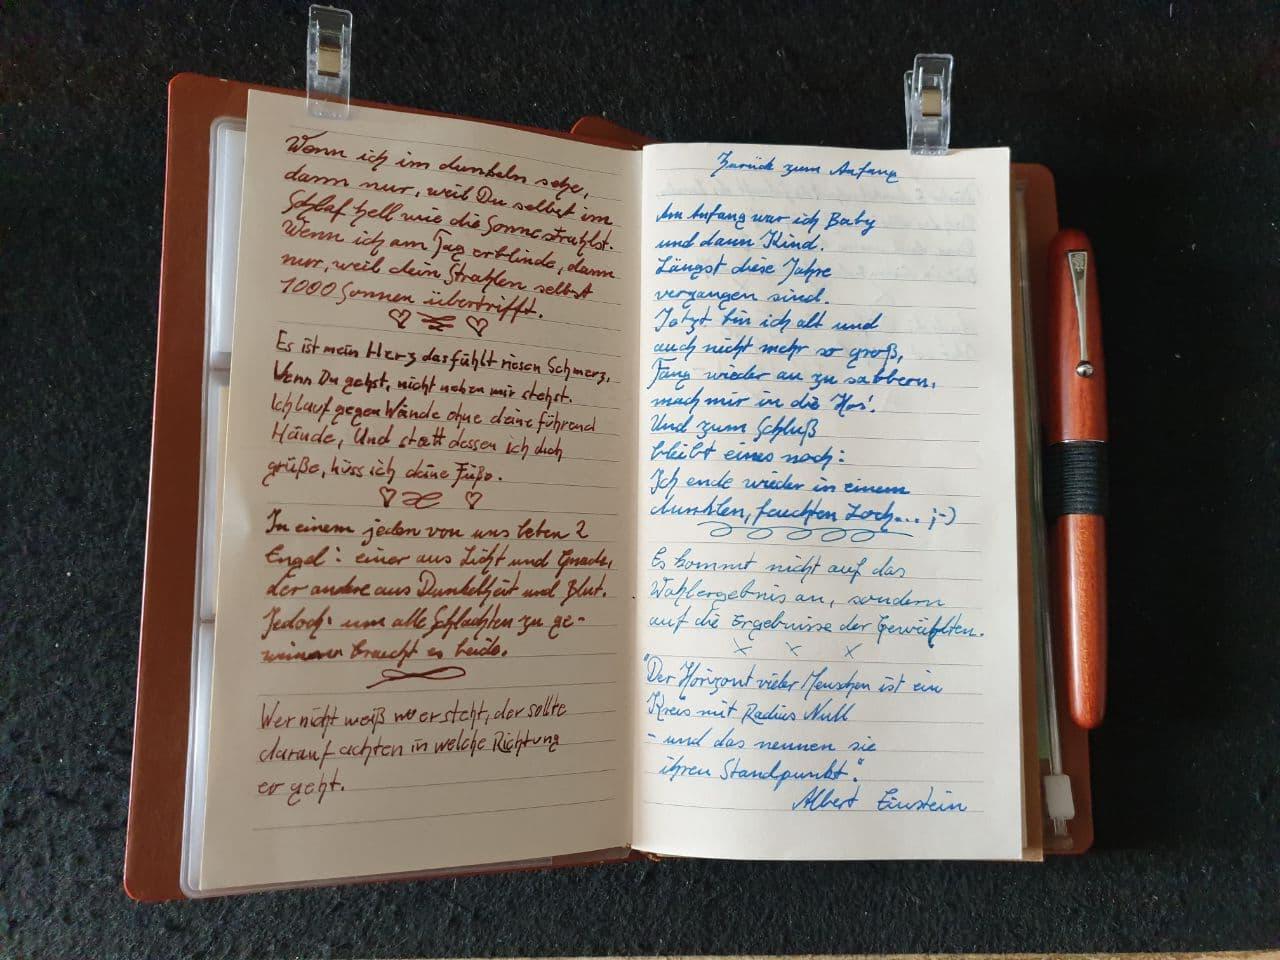 Wenn ich im dunkeln sehe,
dann nur, weil Du selbst im
Schlaf hell wie die Sonne strahlst.
Wenn ich am Tag erblinde, dann
nur, weil dein Strahlen selbst
1000 Sonnen übertrifft.
Es ist mein Herz das fühlt riesen Schmerz,
Wenn Du gehst, nicht neben mir stehst.
Ich lauf gegen Wände ohne deine führend
Hände, Und statt dessen ich dich
grüße, küss ich deine Füße.
In einem jeden von uns leben 2
Engel: einer aus Licht und Gnade,
der andere aus Dunkelheit und Blut.
Jedoch um alle Schlachten zu ge-
winnen braucht es beide.
Wer nicht weiß wo er steht, der sollte
darauf achten in welche Richtung
er geht.
Zurück zum Anfang
Am Anfang war ich Baby
und dann Kind.
Längst diese Jahre
vergangen sind.
Jetzt bin ich alt und
auch nicht mehr so groß,
Fang wieder an zu sabbern,
mach mir in die Hos'.
Und zum Schluß
bleibt eines noch:
Ich ende wieder in einem
dunklen, feuchten Loch... ;-)
Es kommt nicht auf das
Wahlergebnis an, sondern
auf die Ergebnisse der Gewählten.
"Der Horizont vieler Menschen ist ein
Kreis mit Radius Null
- und das nennen sie
ihren Standpunkt."
Albert Einstein